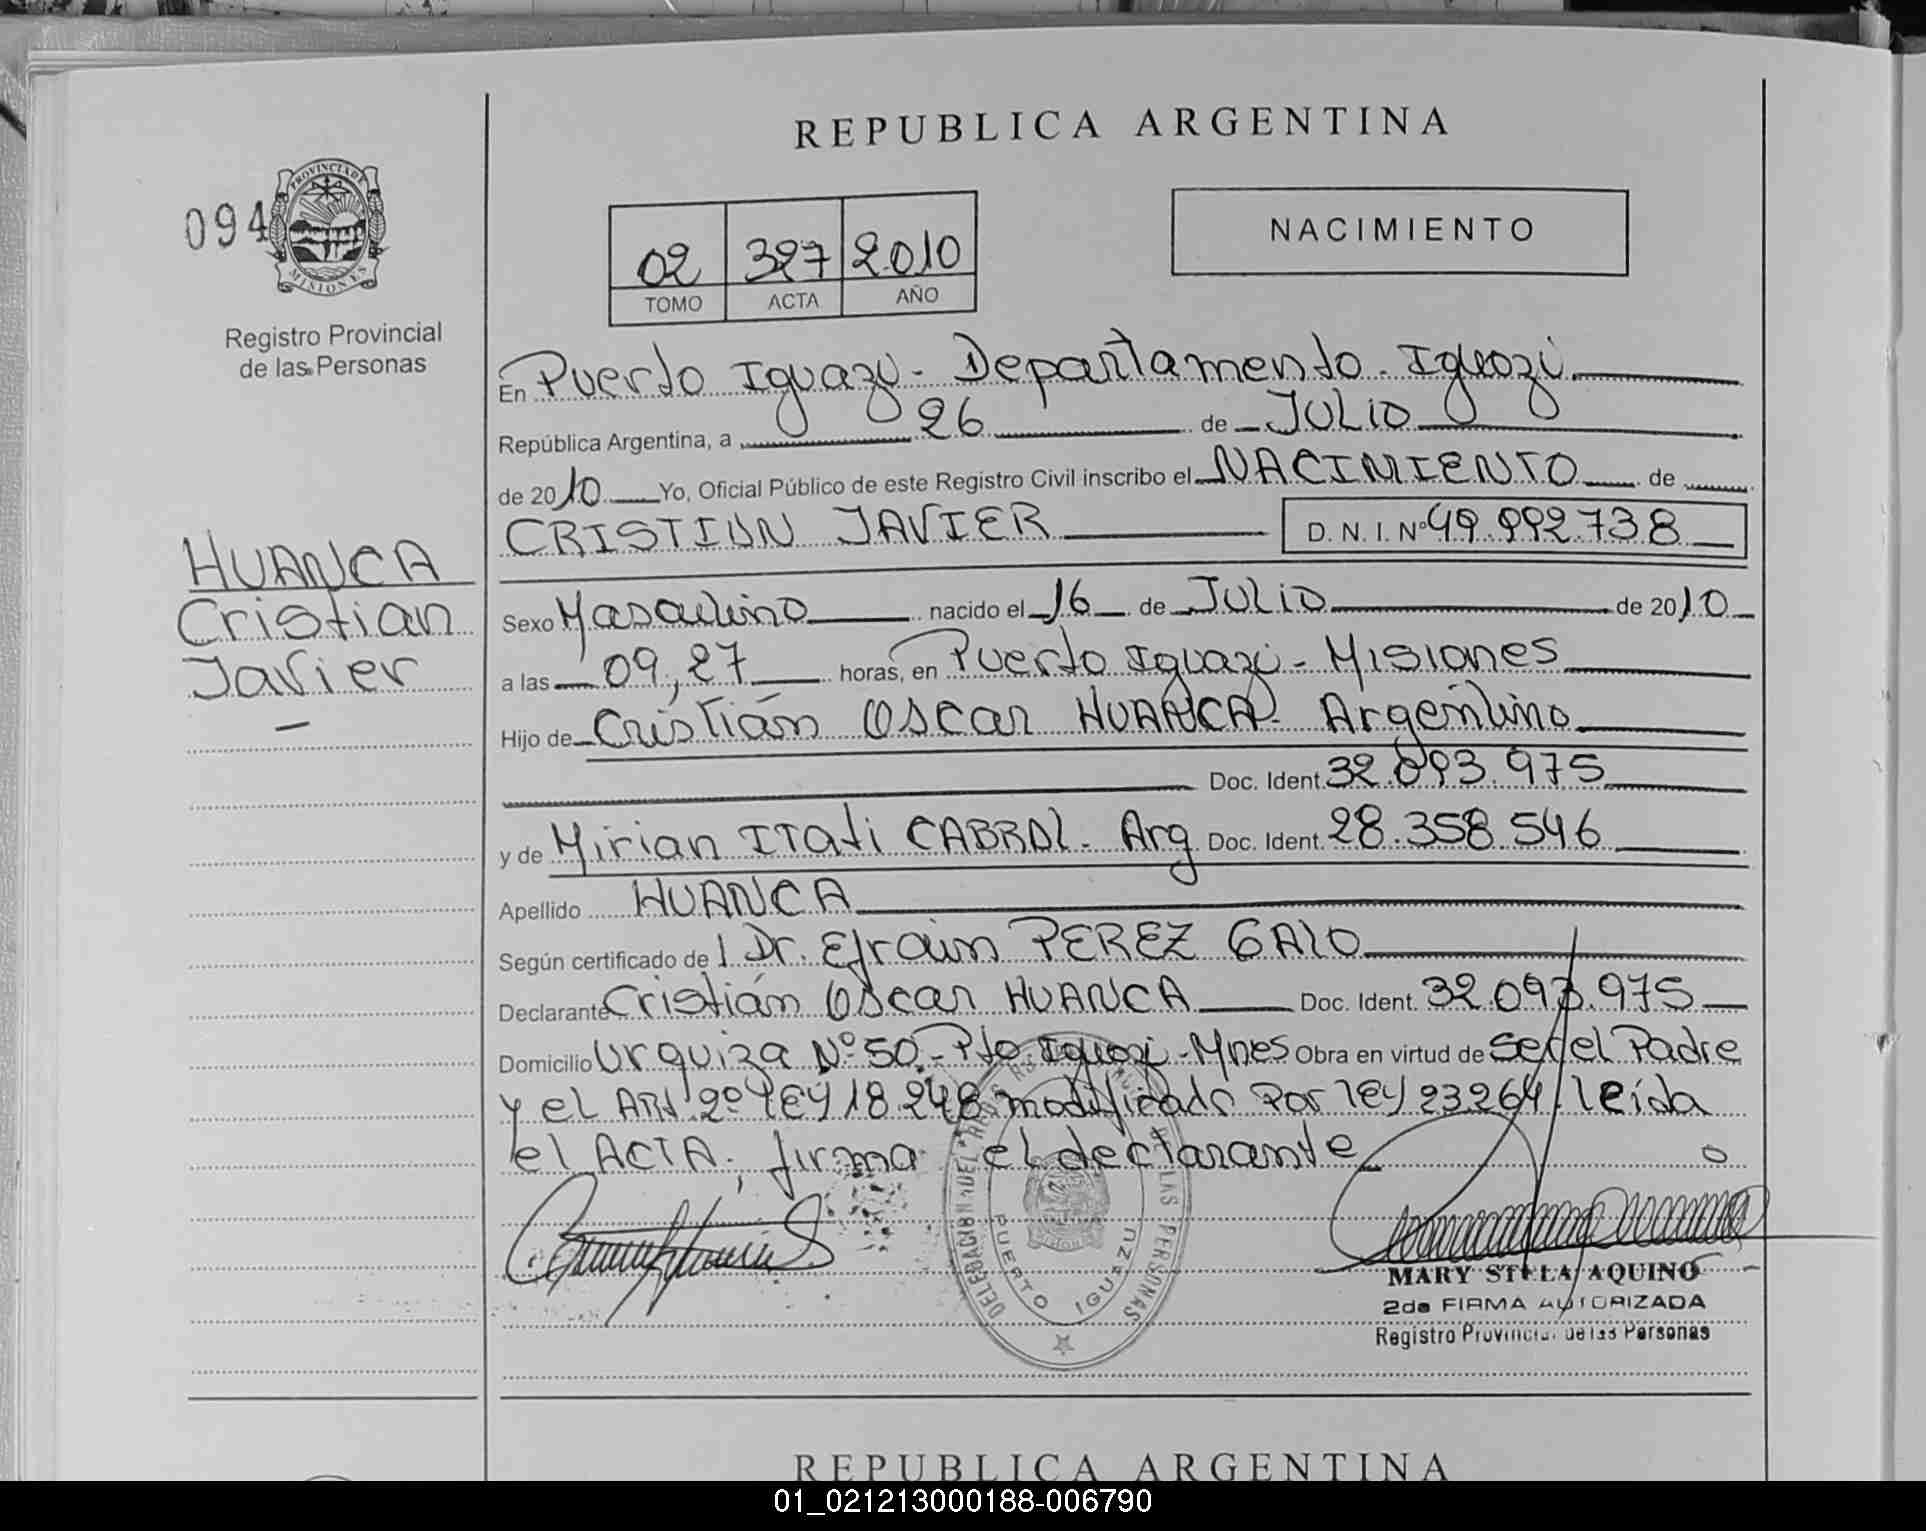 REPUBLICA ARGENTINA
094
PROVINCIA DE
MISIONES
Registro Provincial
de las Personas
02 327 2010
TOMO ACTA AÑO
NACIMIENTO
En Puerto Iguazú - Departamento Iguazú
República Argentina, a 26 de JULIO
de 2010 Yo, Oficial Público de este Registro Civil inscribo el NACIMIENTO de
CRISTIAN JAVIER D. N. I. Nº 49.992.738
HUANCA
Cristian
Javier
Sexo Masculino nacido el 16 de JULIO de 2010
a las 09,27 horas, en Puerto Iguazú - Misiones
Hijo de Cristián Oscar HUANCA - Argentino
Doc. Ident. 32.093.975
y de Mirian ITATI CABRAL - Arg Doc. Ident. 28.358.546
Apellido HUANCA
Según certificado de Dr. Efrain PEREZ GALO
Declarante Cristián Oscar HUANCA Doc. Ident. 32.093.975
Domicilio Urquiza Nº 50 - Pto. Iguazú - Mnes Obra en virtud de Ser el Padre
y el ART 2º LEY 18.248 modificado por ley 23.264. leída
el ACTA, firma el declarante
DELEGACION DEL DE LAS PERSONAS
PUERTO IGUAZU
MARY STELA AQUINO
2da FIRMA AUTORIZADA
Registro Provincial de las Personas
REPUBLICA ARGENTINA
01_021213000188-006790